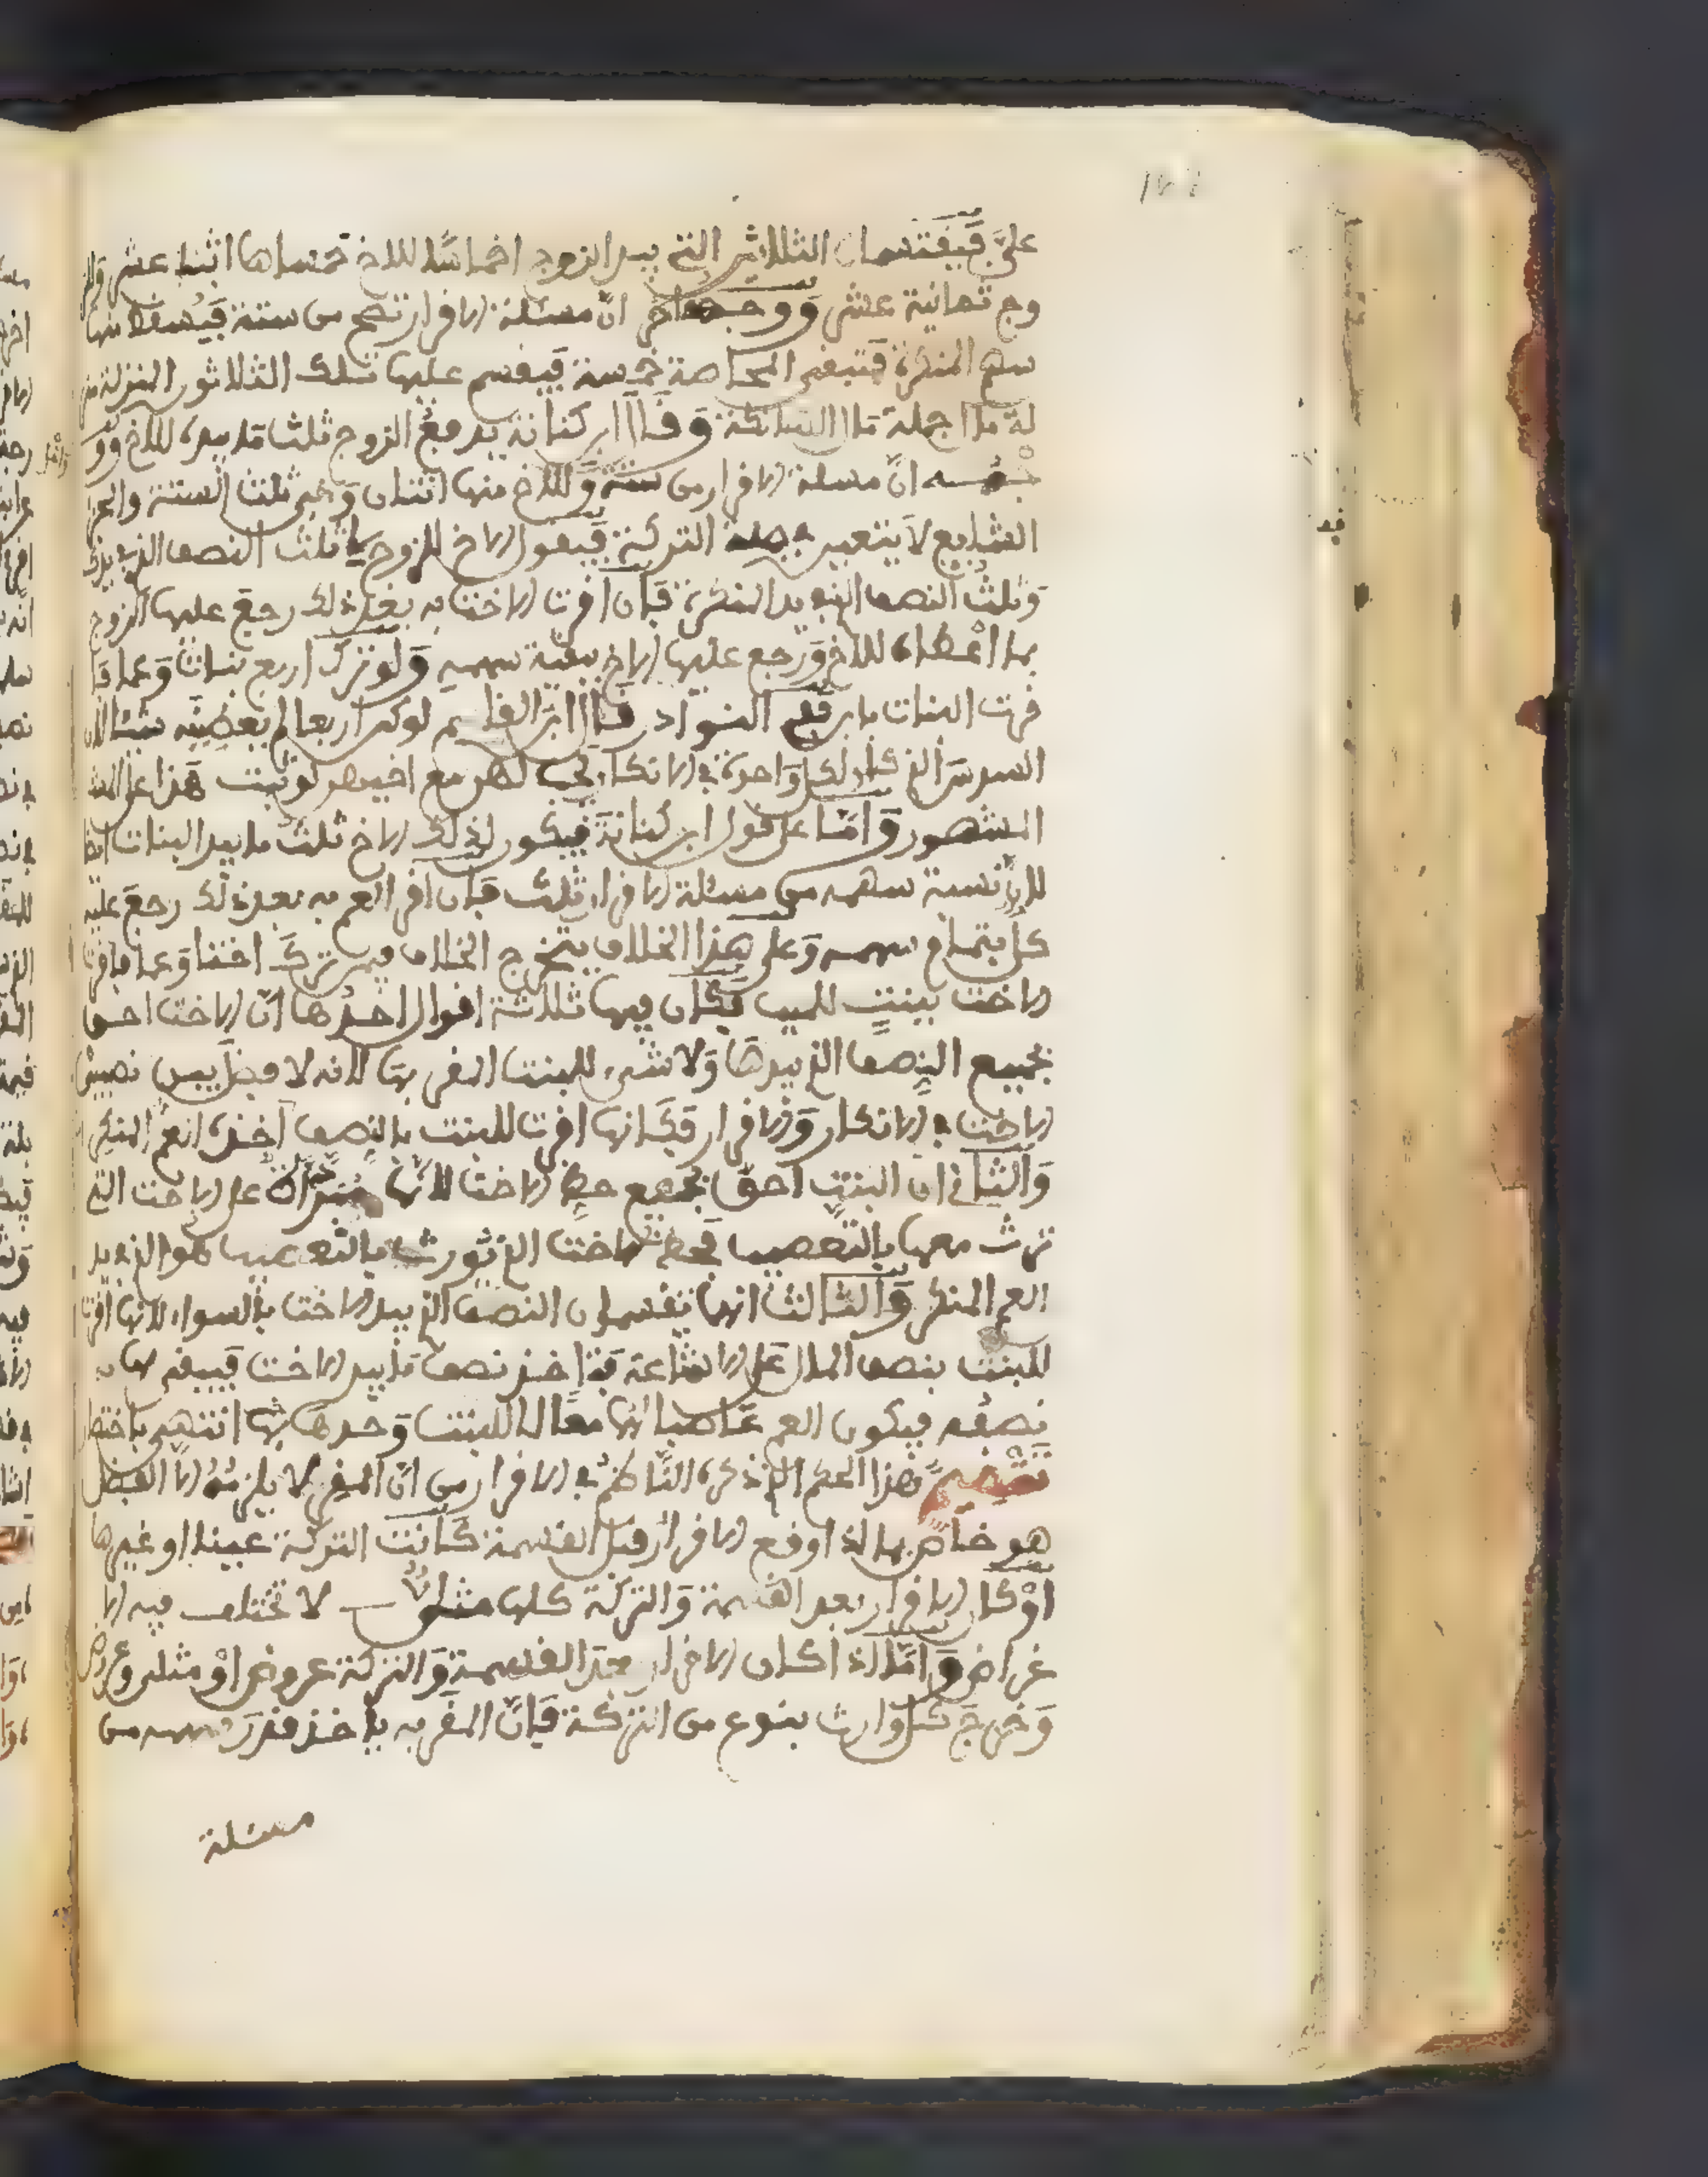 عليَّ فيقتسمان الثلاثين التي بيد الزوج اخماسًا للاخ خمساها اثنا عشر وللز
وج ثمانية عشر ووجه اخر انّ مسئلة الاقرار تصح من ستة فيسقط منها
سهم المنكرة فتبقى المحاصة خمسة فيقسم عليها تلك الثلاثون المنزلة منز
لة ما اجملة مال التركة وقال ابن كنانة يدفع الزوج ثلث ما بيده للاخ وو
جهه انّ مسلة الاقرار من ستة وللاخ منها اثنان وهي ثلث الستة والجز
الشايع لا يتعين جملة التركة فيقول الاخ للزوج لي ثلث النصف الذي بيدك
وثلث النصف الذي بيد المنكرة فان اقرت الاخت به بعد ذلك رجع عليها الزوج
بما اعطاه للاخ ورجع عليها الاخ ببقية سهمه ولو ترك اربع بنات وعما فا
قرت البنات بابن ففي النوادر قال ابن القاسم لو كن اربعا لم يعطينه شيئا لان
السدس الذي كان لكل واحدة في الانكار يجب لهن مع اخيهن لو ثبت هذا على المشـ
المشهور وامّا على قول ابن كنانة فيكون لذلك الاخ ثلث ما بيد البنات ايضا
لان نسبة سهمه من مسئلة الاقرار ثلث فان اقر العم به بعد ذلك رجع عليه
كل بتمام سهمه وعلى هذا الخلاف يتخرج الخلاف فيمن ترك اختا وعما فاقرت
الاخت ببنت للميت فكان فيها ثلاثة اقوال احدها انّ الاخت احق
بجميع النصف الذي بيدها ولا شيء للبنت المقر بها لانه لا فضل بين نصيبي
الاخت في الانكار والاقرار فكانها اقرت للبنت بالنصف اخذه العم المنكر
والثاني ان البنت احق بجميع حظ الاخت لانها على الاخت التي
ترث معها بالتعصيب فحظ الاخت الذي تورث بالتعصيب هو الذي بيد
العم المنكر والثالث انهما تقتسمان النصف الذي بيد الاخت بالسواء لانها اقرت
للبنت بنصف المال على الاشاعة فتاخذ نصف ما بيد الاخت فيبقى لها
نصفه فيكون العم غاصبا لهما معًا لا للبنت وحدها انتهى باختصار
تتميم هذا الحكم الذي ذكره الناظم في الاقرار من انّ المقر لا يلزمه الا الفضل
هو خاص بما اذا وقع الاقرار قبل القسمة كانت التركة عينا او غيرها
او كان الاقرار بعد القسمة والتركة كلها مثليّ لا تختلف فيه الا
غراض وامّا اذا كان الاقرار بعد القسمة والتركة عروض او مثلي وعروض
وخرج كل وارث بنوع من التركة فانّ المقر به ياخذ قدر سهمه من
مسئلة